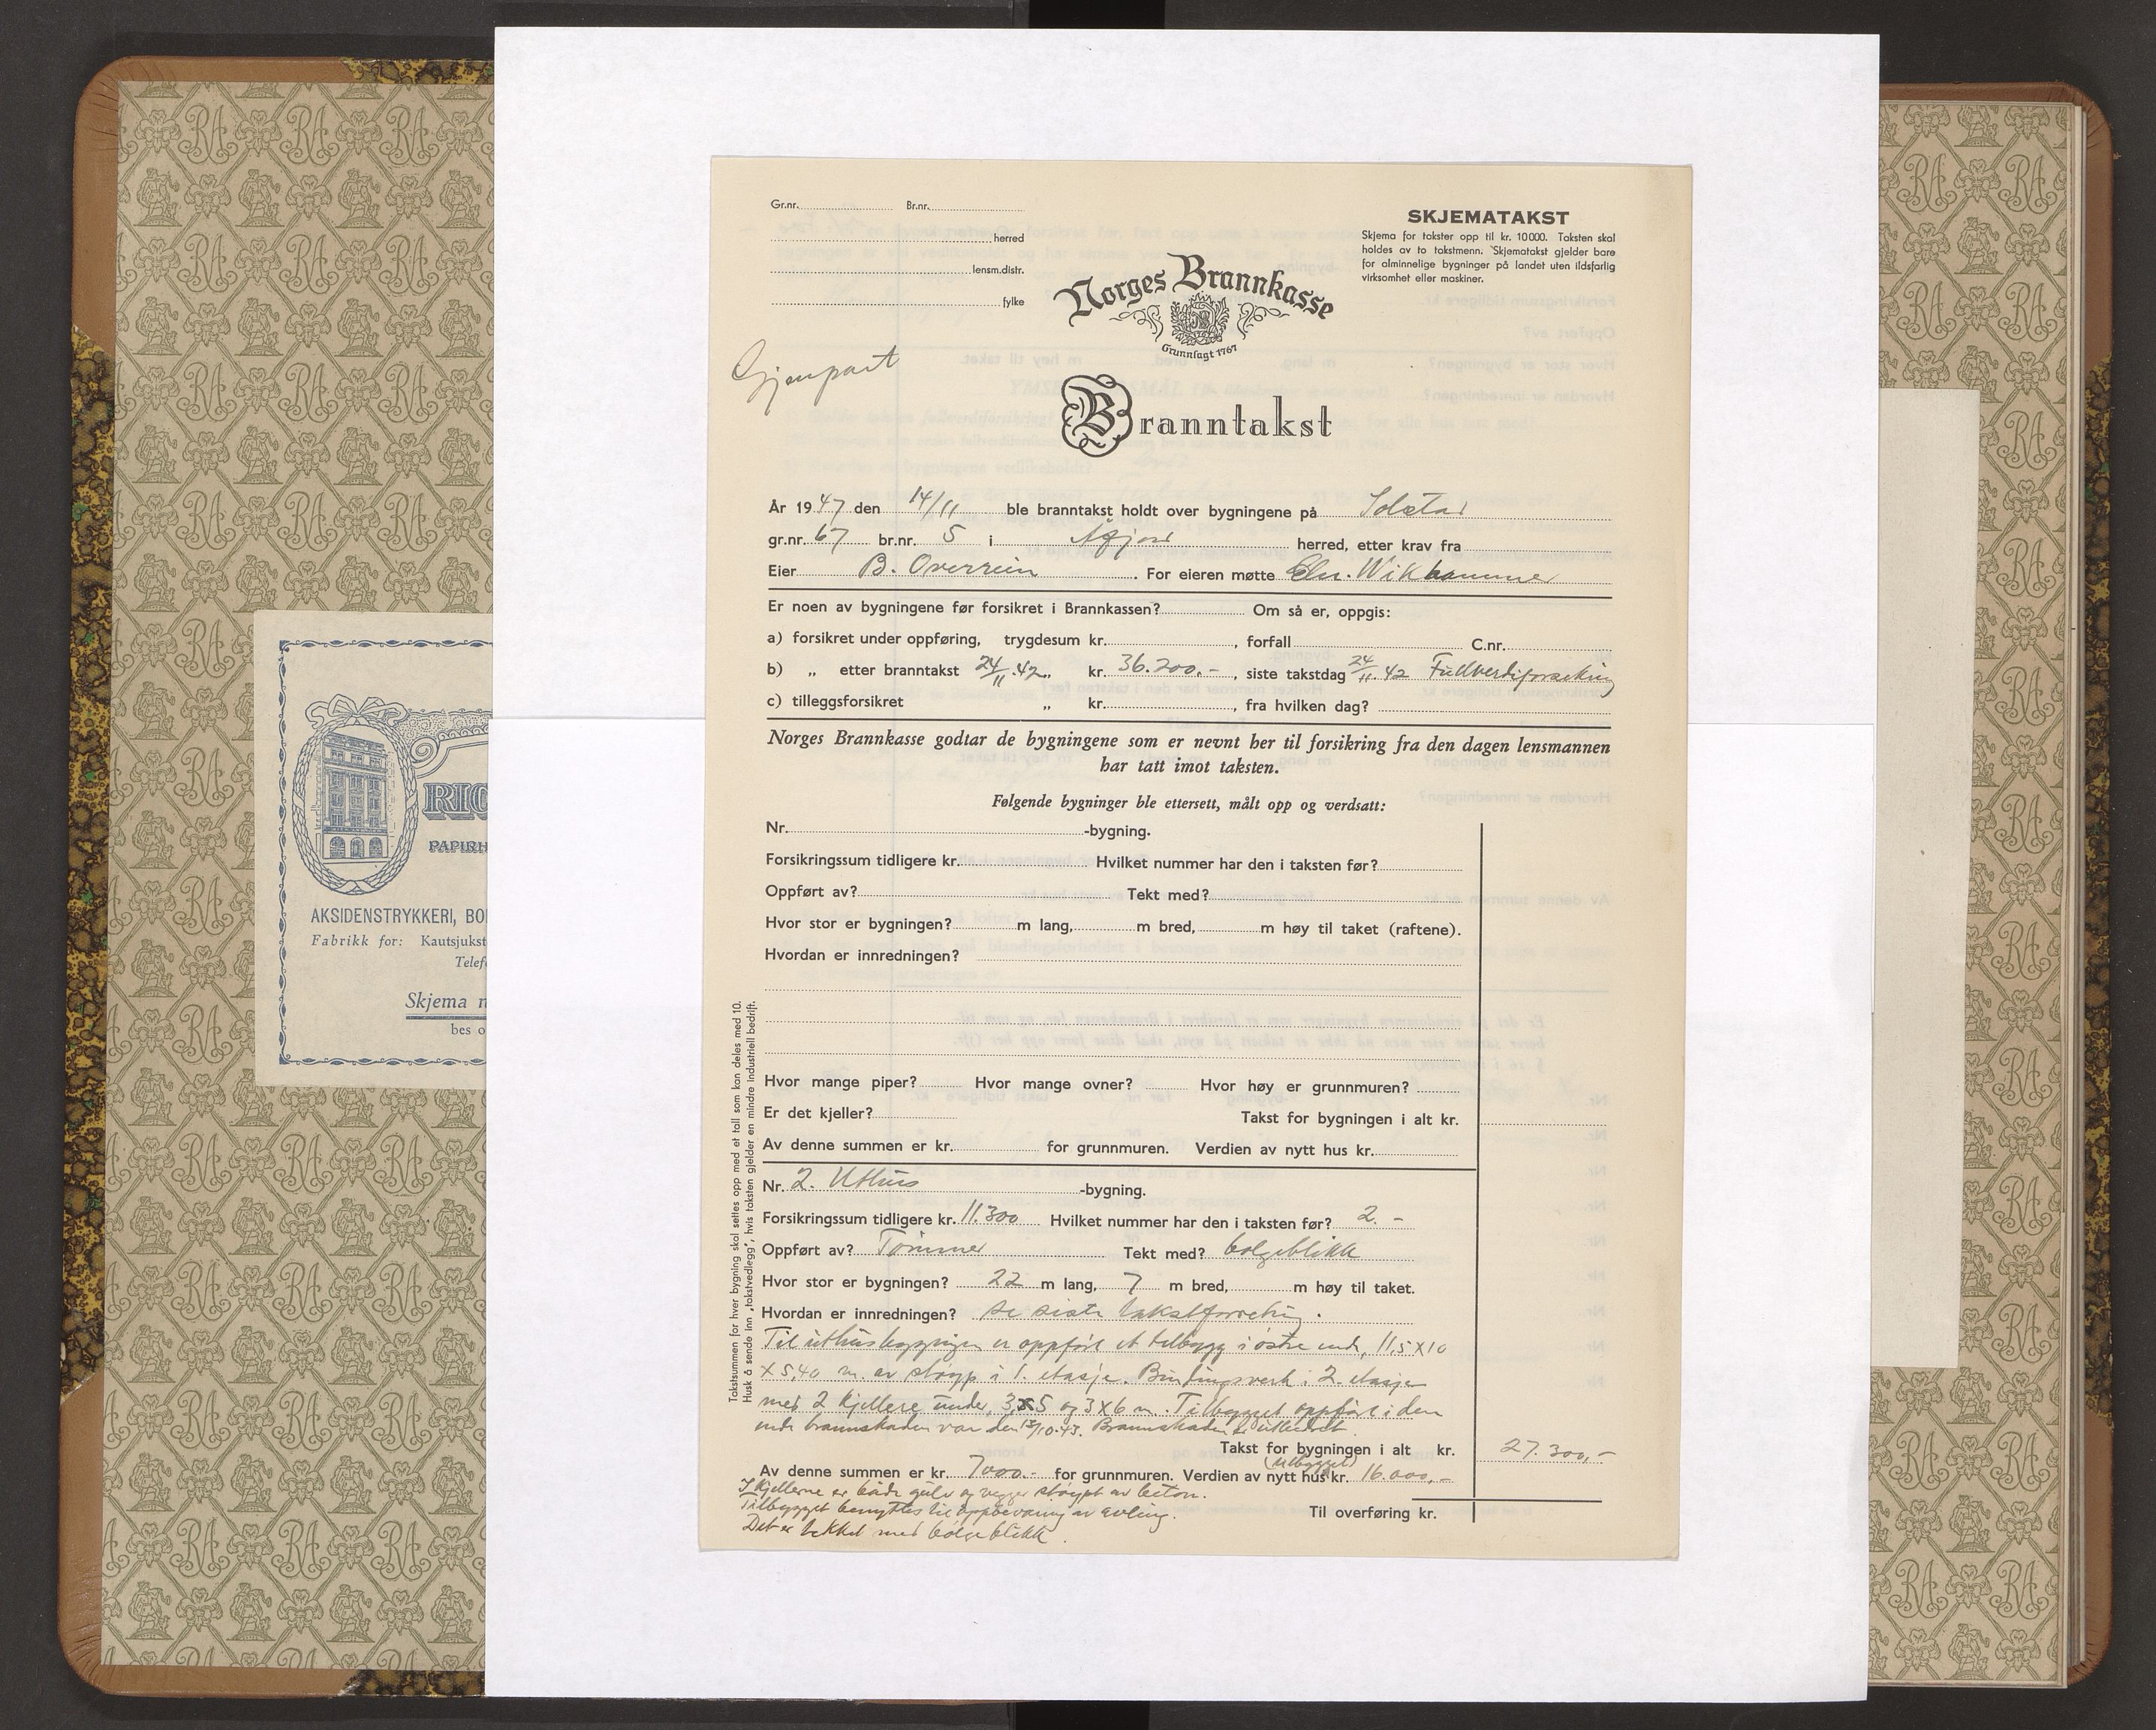 Gr.nr. Br.nr.
herred
lensm.distr.
fylke
SKJEMATAKST
Skjema for takster opp til kr. 10000. Taksten skal
holdes av to takstmenn. Skjematakst gjelder bare
for alminnelige bygninger på landet uten ildsfarlig
virksomhet eller maskiner.
Norges Brannkasse
Grunnlagt 1767
Gjenpart
Branntakst
År 1947 den 14/11 ble branntakst holdt over bygningene på
gr.nr. 67 br.nr. 5 i Åfjord herred, etter krav fra
Eier B. Overrein. For eieren møtte Wikhammer
Er noen av bygningene før forsikret i Brannkassen? Om så er, oppgis:
a) forsikret under oppføring, trygdesum kr. , forfall C.nr.
b) „ etter branntakst 24/11.42 „ kr. 36.200.-, siste takstdag 24/11.42 Fullverdiforsikring
c) tilleggsforsikret „ kr. , fra hvilken dag?
Norges Brannkasse godtar de bygningene som er nevnt her til forsikring fra den dagen lensmannen
har tatt imot taksten.
Følgende bygninger ble ettersett, målt opp og verdsatt:
Nr. -bygning.
Forsikringssum tidligere kr. Hvilket nummer har den i taksten før?
Oppført av? Tekt med?
Hvor stor er bygningen? m lang, m bred, m høy til taket (raftene).
Hvordan er innredningen?
Hvor mange piper? Hvor mange ovner? Hvor høy er grunnmuren?
Er det kjeller? Takst for bygningen i alt kr.
Av denne summen er kr. for grunnmuren. Verdien av nytt hus kr.
Nr. 2. Uthus -bygning.
Forsikringssum tidligere kr. 11.300 Hvilket nummer har den i taksten før? 2. -
Oppført av? Tømmer Tekt med? bølgeblikk
Hvor stor er bygningen? 22 m lang, 7 m bred, m høy til taket.
Hvordan er innredningen? se siste takstforretn.
Til uthusbygningen er oppført et tilbygg i østre ende, 11,5 X 10
X 5,40 m. av støyp i 1. etasje. Bindingsverk i 2. etasje
med 2 kjellere under, 3x5 og 3X6 m. Tilbygget oppført i den
ende brannskaden var den 13/10.43. Brannskaden er utbedret.
Takst for bygningen i alt kr. 27.300,-
Av denne summen er kr. 7000.- for grunnmuren. Verdien av nytt hus (tilbygget) kr. 16.000,-
I kjellerne er både gulv og vegger støypt av beton.
Tilbygget benyttes til oppbevaring av avling.
Det er tekket med bølgeblikk.
Til overføring kr.
Takstsummen for hver bygning skal settes opp med et tall som kan deles med 10.
Husk å sende inn „takstvedlegg", hvis taksten gjelder en mindre industriell bedrift.
RIC
PAPIRH
AKSIDENSTRYKKERI, BO
Fabrikk for: Kautsjukst
Telef
Skjema n
bes o